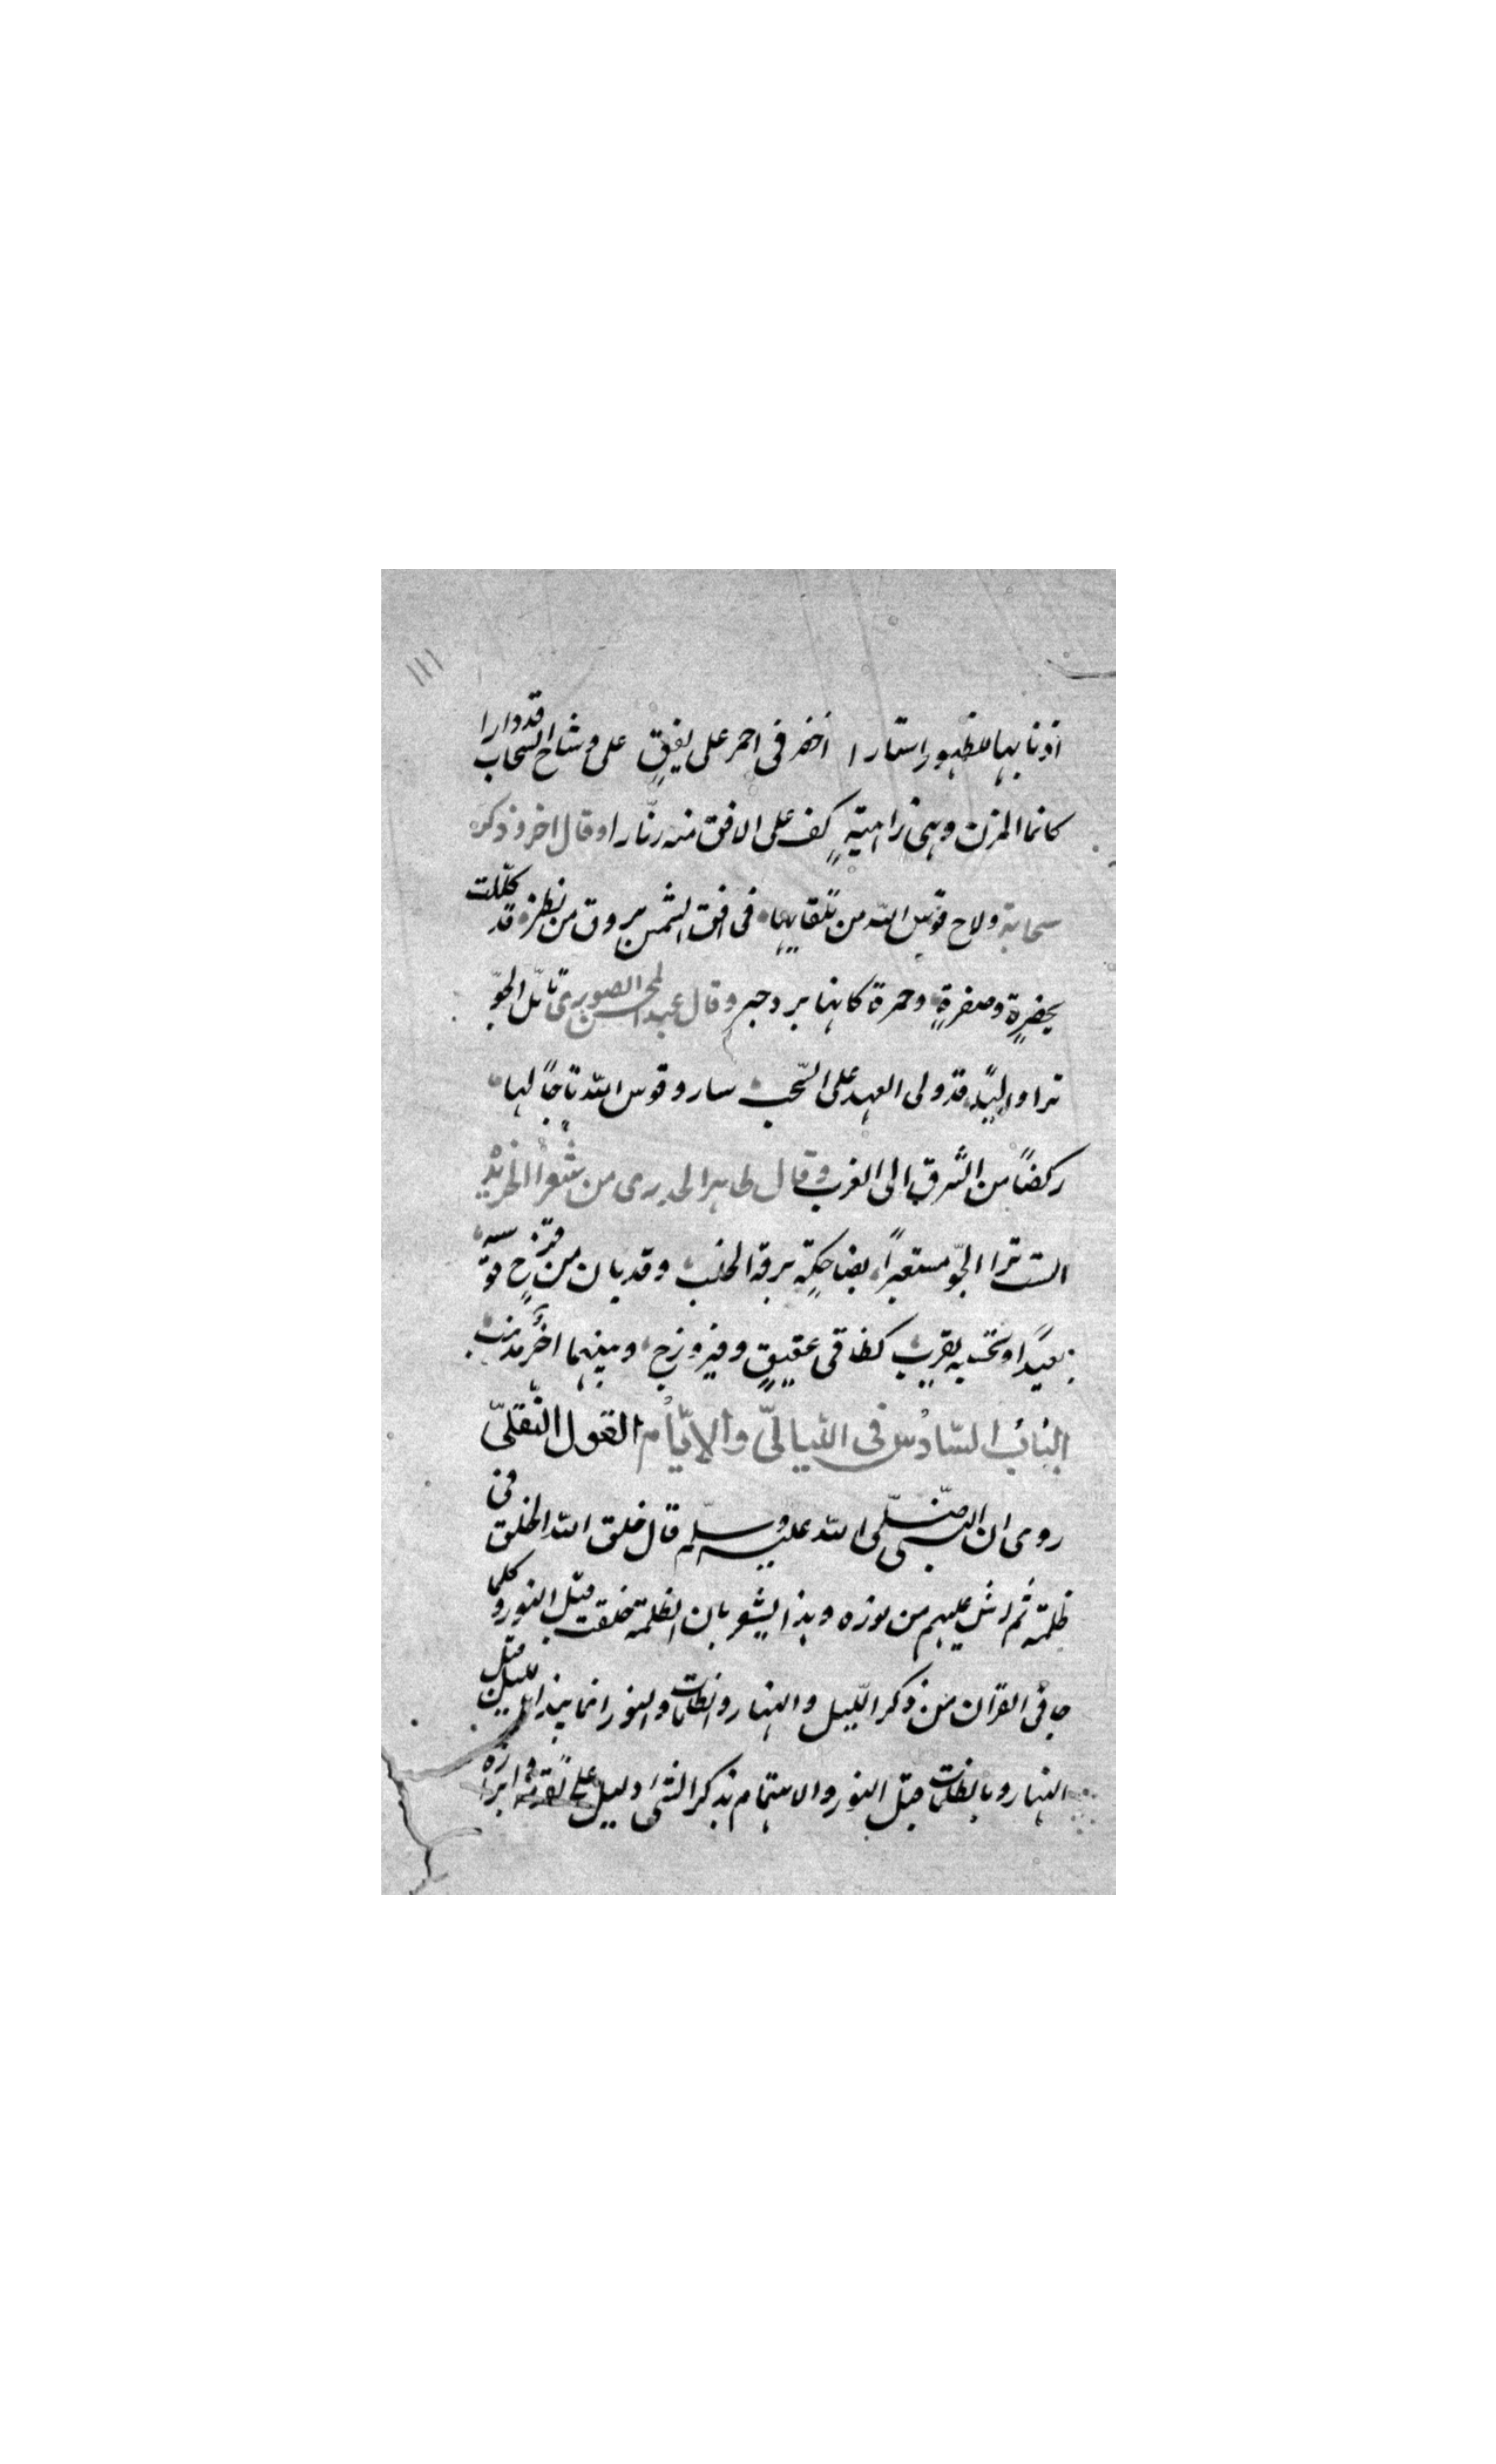 ١١١
اذنابها للظهور استارا اخضر فى احمر على يقق على وشاح السحاب قد دارا
كانما المزن وهى راهبة كف على الافق منه زنارا وقال اخر وذكر
سحابة ولاح قوس الله من تلقايها فى افق الشمس بروق من نظر قد كللت
بخضرة وصفرة وحمرة كانها برد حبر وقال عبد المحسن الصورى تامل الجو
ترا واليًا قد ولى العهد على السحب سار وقوس الله تاجًا لها
ركضًا من الشرق الى الغرب وقال طاهر الحدرى من شعراء الخريدة
الست ترا الجو مستعبرًا يضاحكه برقه الخلب وقد بان من قزح قوسه
بعيدًا وتحسبه يقرب كطاقى عقيق وفيروزج وبينهما اخر مذهب
الباب السادس فى الليالى والايام القول النقلى
روى ان النبى صلى الله عليه وسلم قال خلق الله الخلق فى
ظلمة ثم رش عليهم من نوره وهذا يشعر بان الظلمة خلقت قبل النور وكلما
جا فى القران من ذكر الليل والنهار والظلمات والنور انما يبدا بالليل قبل
النهار وبالظلمات قبل النور والاهتمام بذكر الشى دليل على تقدمه وابرازه